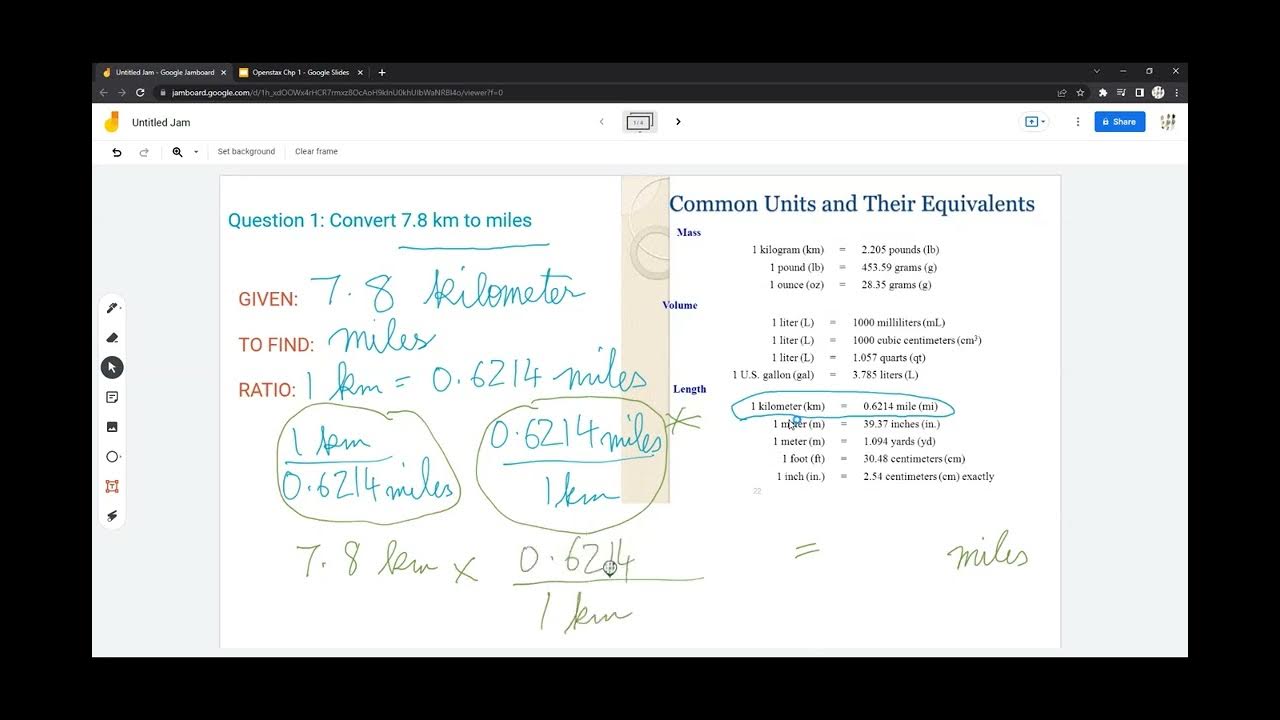 Untitled Jam - Google Jamboard
Openstax Chp 1 - Google Slides
Untitled Jam
1 / 4
Share
Set background
Clear frame
Question 1: Convert 7.8 km to miles
GIVEN: 7.8 kilometer
TO FIND: miles
RATIO: 1 km = 0.6214 miles
1 km
0.6214 miles
0.6214 miles
1 km
7.8 km × 0.6214 = miles
1 km
Common Units and Their Equivalents
Mass
1 kilogram (km) = 2.205 pounds (lb)
1 pound (lb) = 453.59 grams (g)
1 ounce (oz) = 28.35 grams (g)
Volume
1 liter (L) = 1000 milliliters (mL)
1 liter (L) = 1000 cubic centimeters (cm³)
1 liter (L) = 1.057 quarts (qt)
1 U.S. gallon (gal) = 3.785 liters (L)
Length
1 kilometer (km) = 0.6214 mile (mi)
1 meter (m) = 39.37 inches (in.)
1 meter (m) = 1.094 yards (yd)
1 foot (ft) = 30.48 centimeters (cm)
1 inch (in.) = 2.54 centimeters (cm) exactly
22